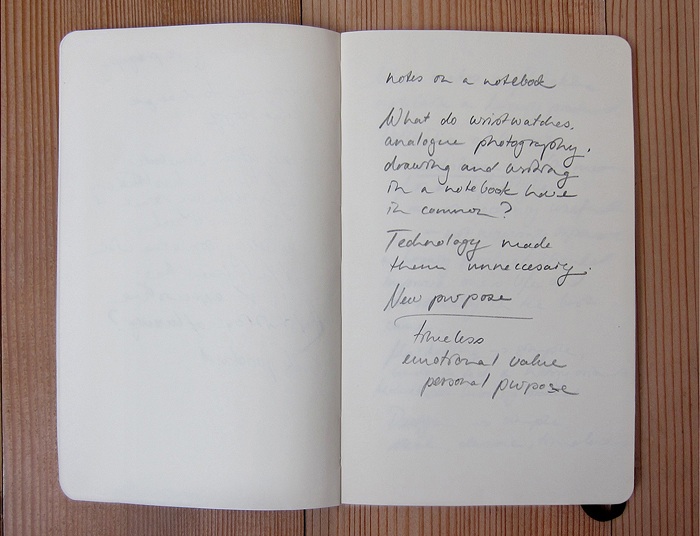 notes on a notebook
What do wristwatches,
analogue photography,
drawing and writing
in a notebook have
in common?
Technology made
them unneccesary.
New purpose
timeless
emotional value
personal purpose